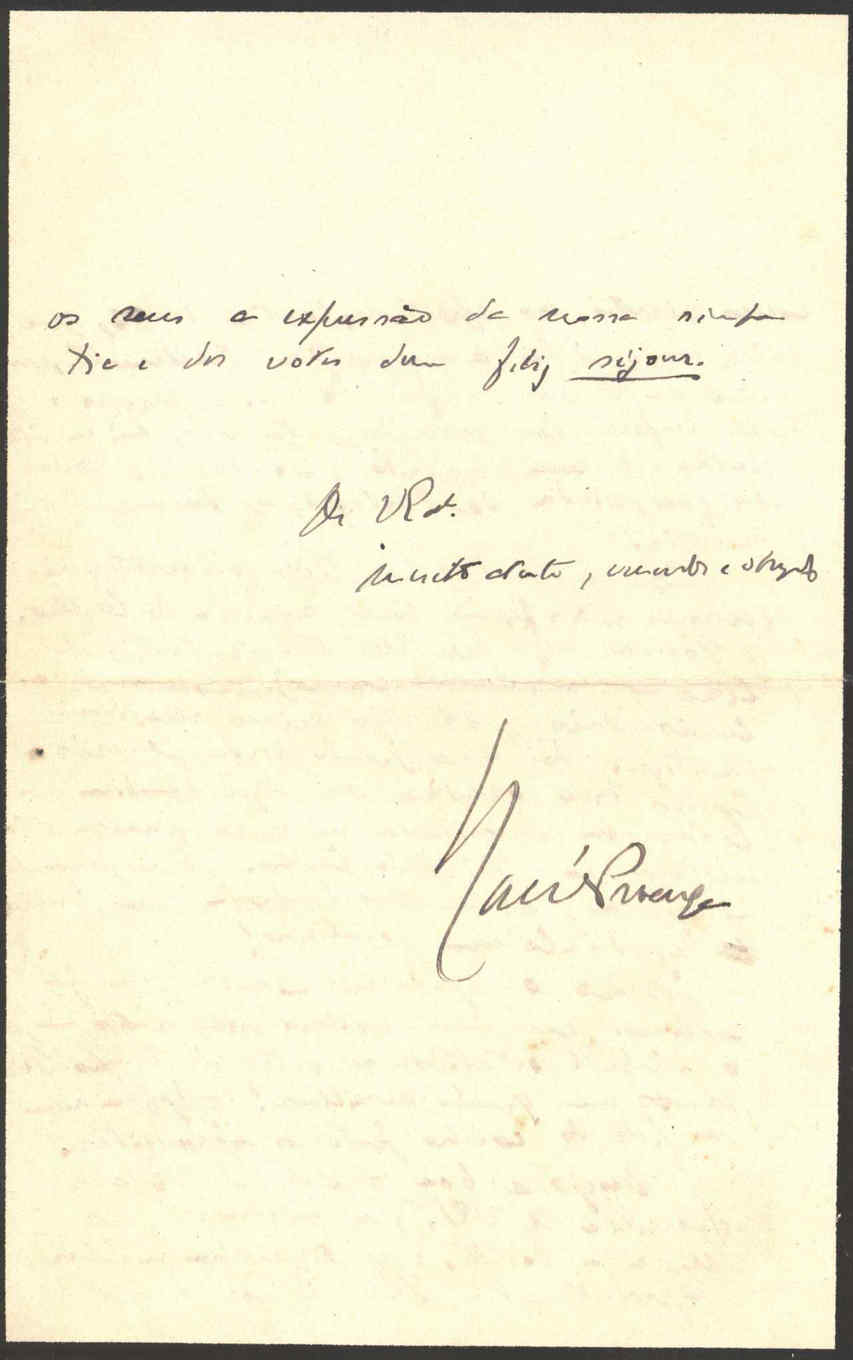 os seus a expressão da nossa simpa
tia e dos votos dum feliz séjour.
De V. Ex.ª
muito atento, venerador e obrigado
Raul Proença